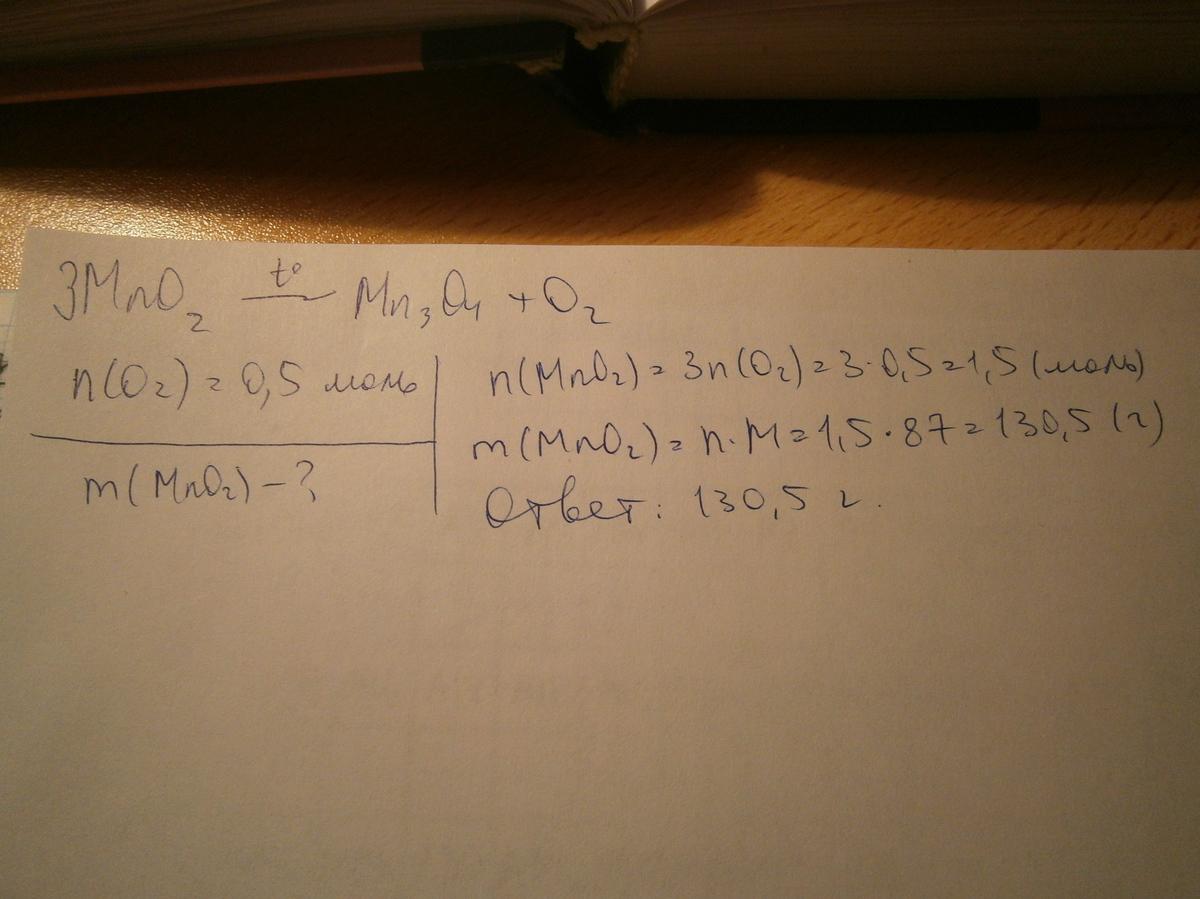 3MnO₂ t° → Mn₃O₄ + O₂
n(O₂) = 0,5 моль
m(MnO₂) – ?
n(MnO₂) = 3n(O₂) = 3·0,5 = 1,5 (моль)
m(MnO₂) = n·M = 1,5·87 = 130,5 (г)
Ответ: 130,5 г.